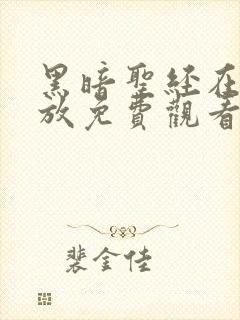 黑暗聖經在
放免費觀看
裴金佳